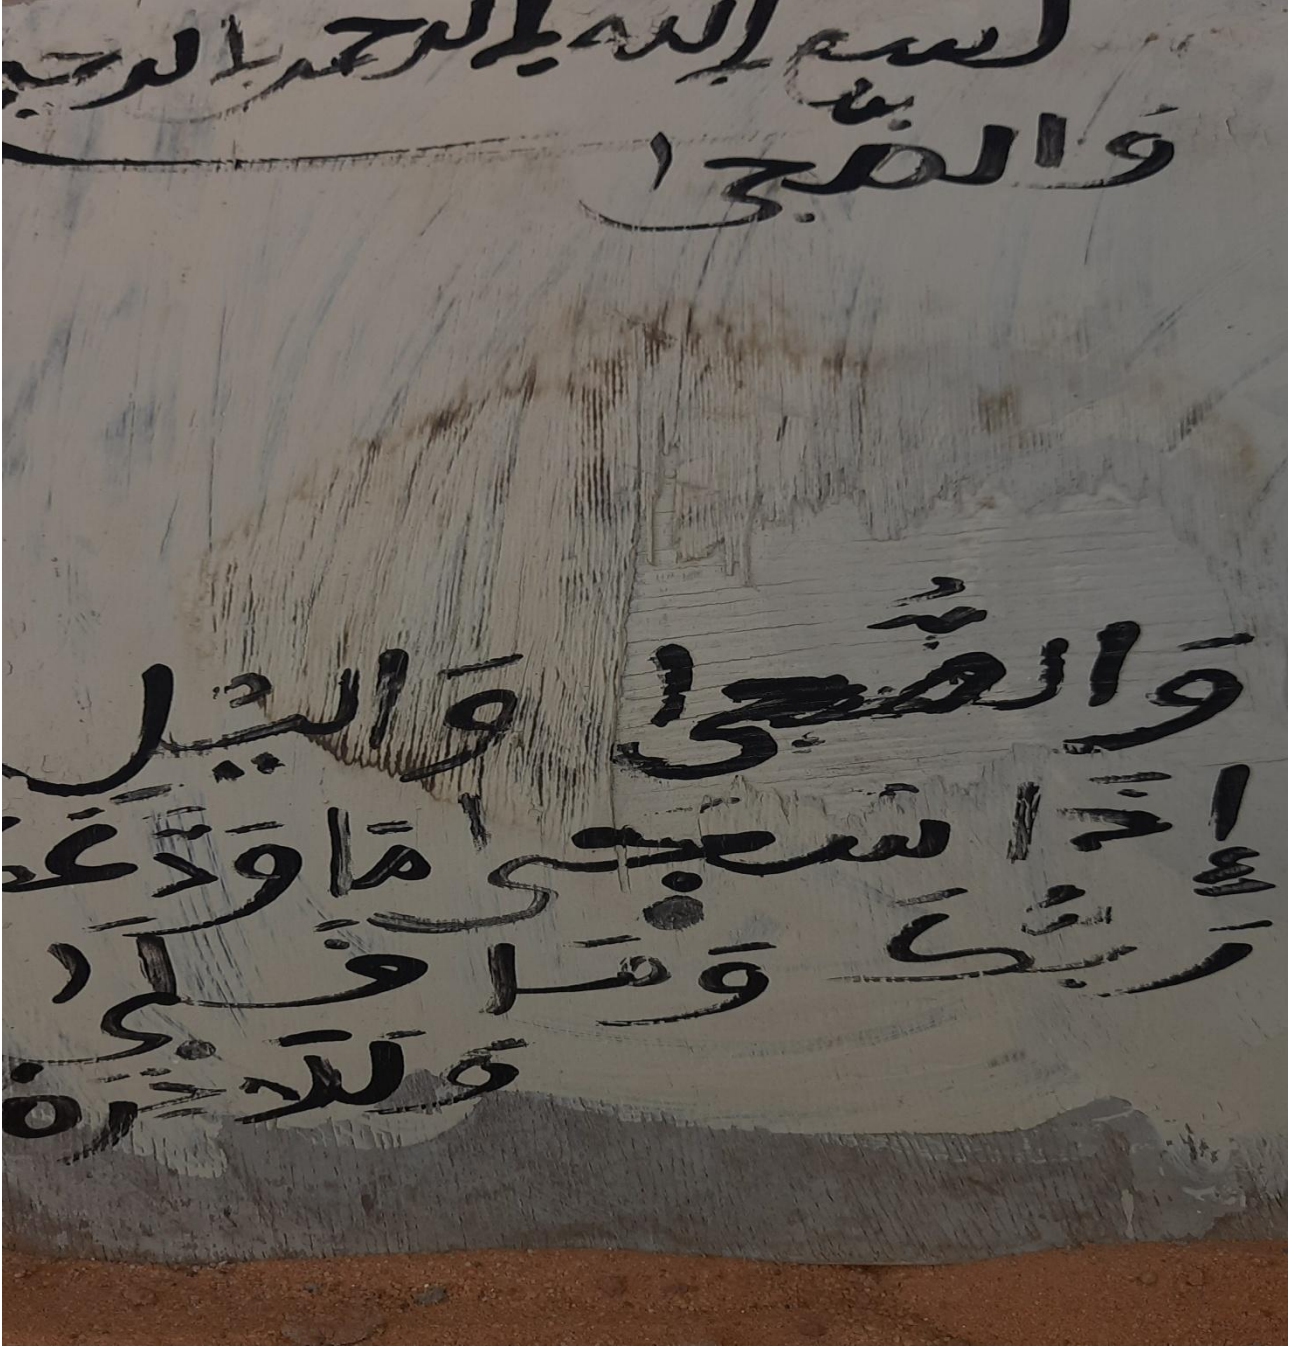 بسم الله الرحمن الرحيم
وَالضُّحىٰ
وَالضُّحىٰ وَاليْل
إِذَا سَجىٰ مَا وَدَّعَكَ
رَبُّكَ وَمَا قَلىٰ
وَلَلاَخِرَة